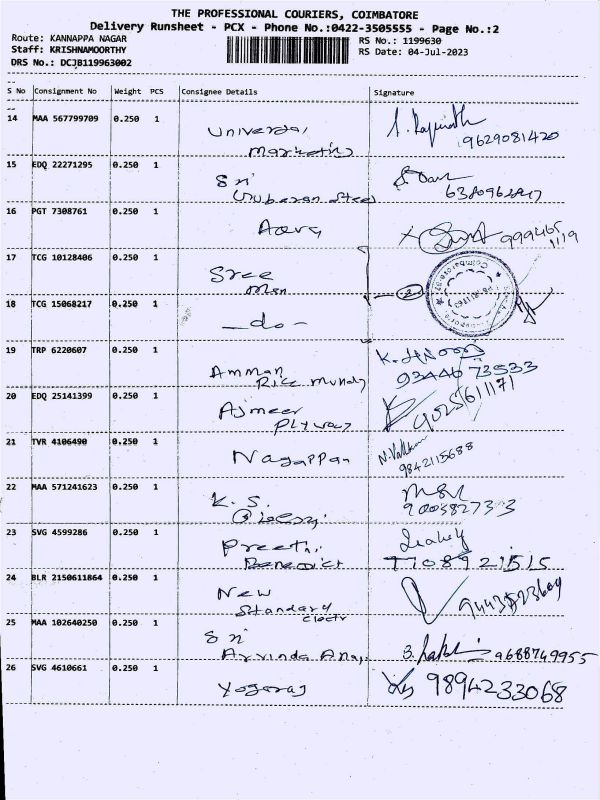 THE PROFESSIONAL COURIERS, COIMBATORE
Delivery Runsheet - PCX - Phone No.:0422-3505555 - Page No.:2
Route: KANNAPPA NAGAR
Staff: KRISHNAMOORTHY
DRS No.: DCJB119963002
RS No.: 1199630
RS Date: 04-Jul-2023
S No Consignment No Weight PCS Consignee Details Signature
14 MAA 567799709 0.250 1 Universal
Marketing 9629081420
15 EDQ 22271295 0.250 1 Sri
Gubaran Steel
16 PGT 7308761 0.250 1
17 TCG 10128406 0.250 1 Sree
18 TCG 15068217 0.250 1 -do-
19 TRP 6220607 0.250 1 Amman
Rice Mundy 9344673533
20 EDQ 25141399 0.250 1 Ajmeer
Plywood 9025611171
21 TVR 4106490 0.250 1 Nagappan
9842115688
22 MAA 571241623 0.250 1 K. S.
23 SVG 4599286 0.250 1 Preethi
Benedict 7708921515
24 BLR 2150611864 0.250 1 New
Standard
25 MAA 102640250 0.250 1 Sri
Arvinda 9688749955
26 SVG 4610661 0.250 1 Yogaraj 9894233068